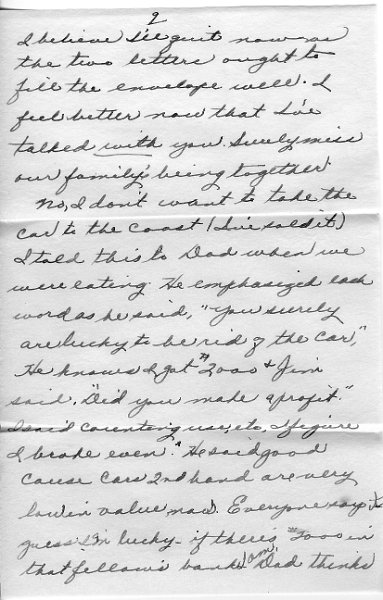 9
I believe I'll quit now as
the two letters ought to
fill the envelope well. I
feel better now that I've
talked with you. Surely miss
our family's being together.
No, I don't want to take the
car to the coast (I've sold it)
I told this to Dad when we
were eating. He emphasized each
word as he said, "You surely
are lucky to be rid of the car,"
He knows I got $2000 & Jim
said, "Did you make a profit."
I said counting use, etc, I figure
I broke even." He said good
cause cars 2nd hand are very
low in value now. Everyone says
guess I'm lucky - if there's $2000 in
that fellow's bank. Dad thinks